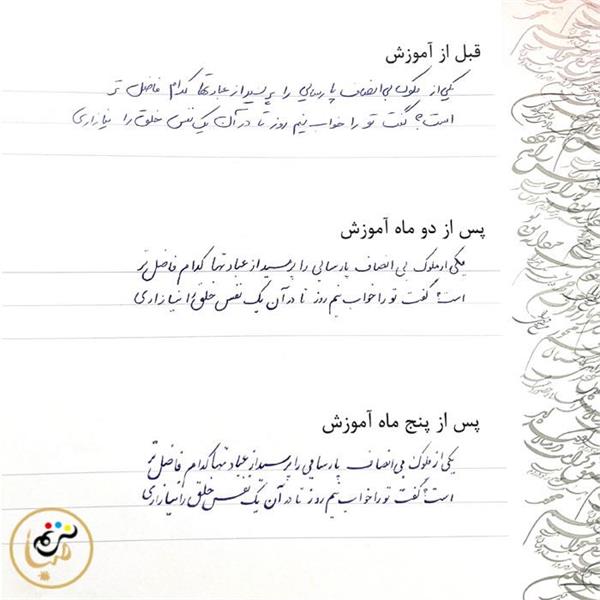 قبل از آموزش
یکی از ملوک بی انصاف پارسایی را پرسید از عبادتها کدام فاضل تر
است؟ گفت تو را خواب نیم روز تا در آن یک نفس خلق را نیازاری
پس از دو ماه آموزش
یکی از ملوک بی انصاف پارسایی را پرسید از عبادتها کدام فاضل تر
است؟ گفت تو را خواب نیم روز تا در آن یک نفس خلق را نیازاری
پس از پنج ماه آموزش
یکی از ملوک بی انصاف پارسایی را پرسید از عبادتها کدام فاضل تر
است؟ گفت تو را خواب نیم روز تا در آن یک نفس خلق را نیازاری